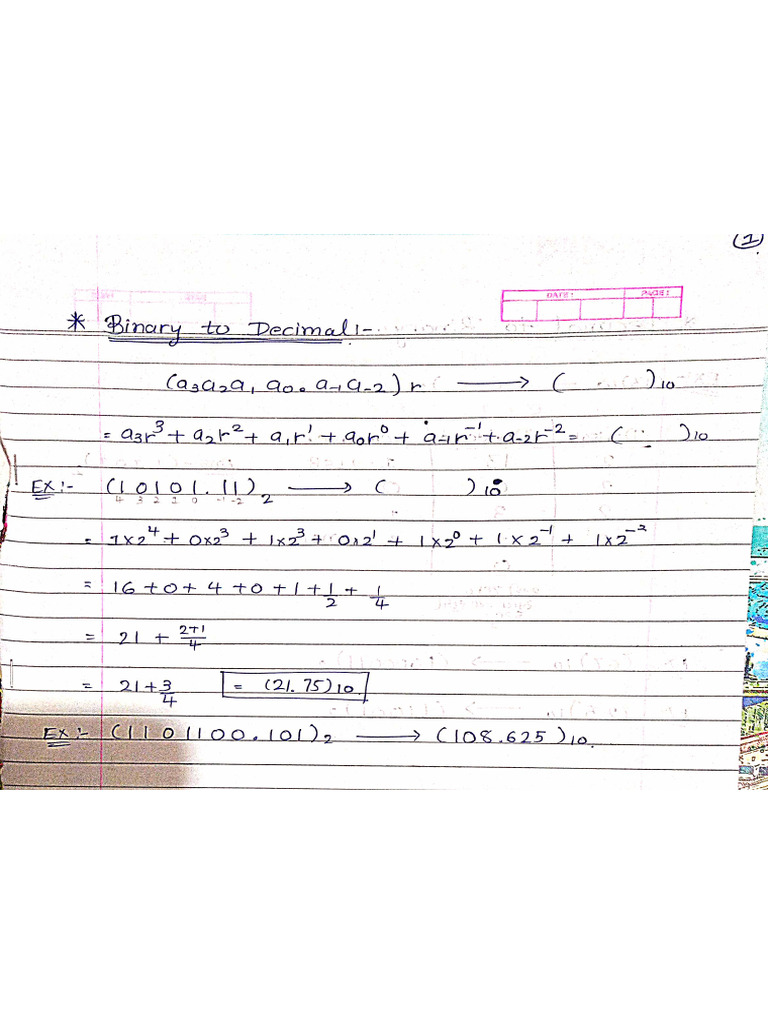 (1)
DATE: PAGE:
* Binary to Decimal:-
(a₃a₂a₁ a₀. a₋₁a₋₂) r ⟶ ( )₁₀
= a₃r³ + a₂r² + a₁r¹ + a₀r⁰ + a₋₁r⁻¹ + a₋₂r⁻² = ( )₁₀
Ex:- (10101.11)₂ ⟶ ( )₁₀
4 3 2 1 0 -1 -2
= 1x2⁴ + 0x2³ + 1x2³ + 0x2¹ + 1x2⁰ + 1x2⁻¹ + 1x2⁻²
= 16 + 0 + 4 + 0 + 1 + 1/2 + 1/4
= 21 + 2+1/4
= 21 + 3/4 = (21.75)₁₀
Ex:- (1101100.101)₂ ⟶ (108.625)₁₀.